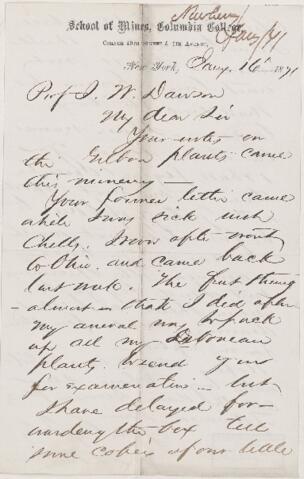 Newberry
Jany/71
School of Mines, Columbia College,
Corner 49th Street & 4th Avenue,
New York, Jany. 16 1871
Prof J. W. Dawson
My dear Sir
Your notes on
the Gilboa plants came
this morning —
Your former letter came
while I was sick with
Chills. I soon after went
to Ohio and came back
last week. The first thing
— almost — that I did after
my arrival was to pack
up all my Devonian
plants to send you
for examination — but
I have delayed for-
warding the box till
some copies of our little